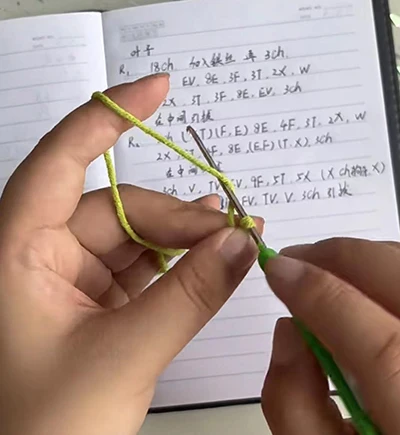 叶子
R1 18ch 加入铁丝 再 3ch
EV, 8E, 3F, 3T, 2X, W
2X, 3T, 3F, 8E, EV, 3ch
在中间引拔
R2 ch ( T)(F, E) 8E, 4F, 3T, 2X, W
2X, F, 8E, (E.F)(T.X), 3ch
在中间
3ch, V, TV, FV, 9F, 5T, 5X (X ch X)
FV, TV, V, 3ch 引拔